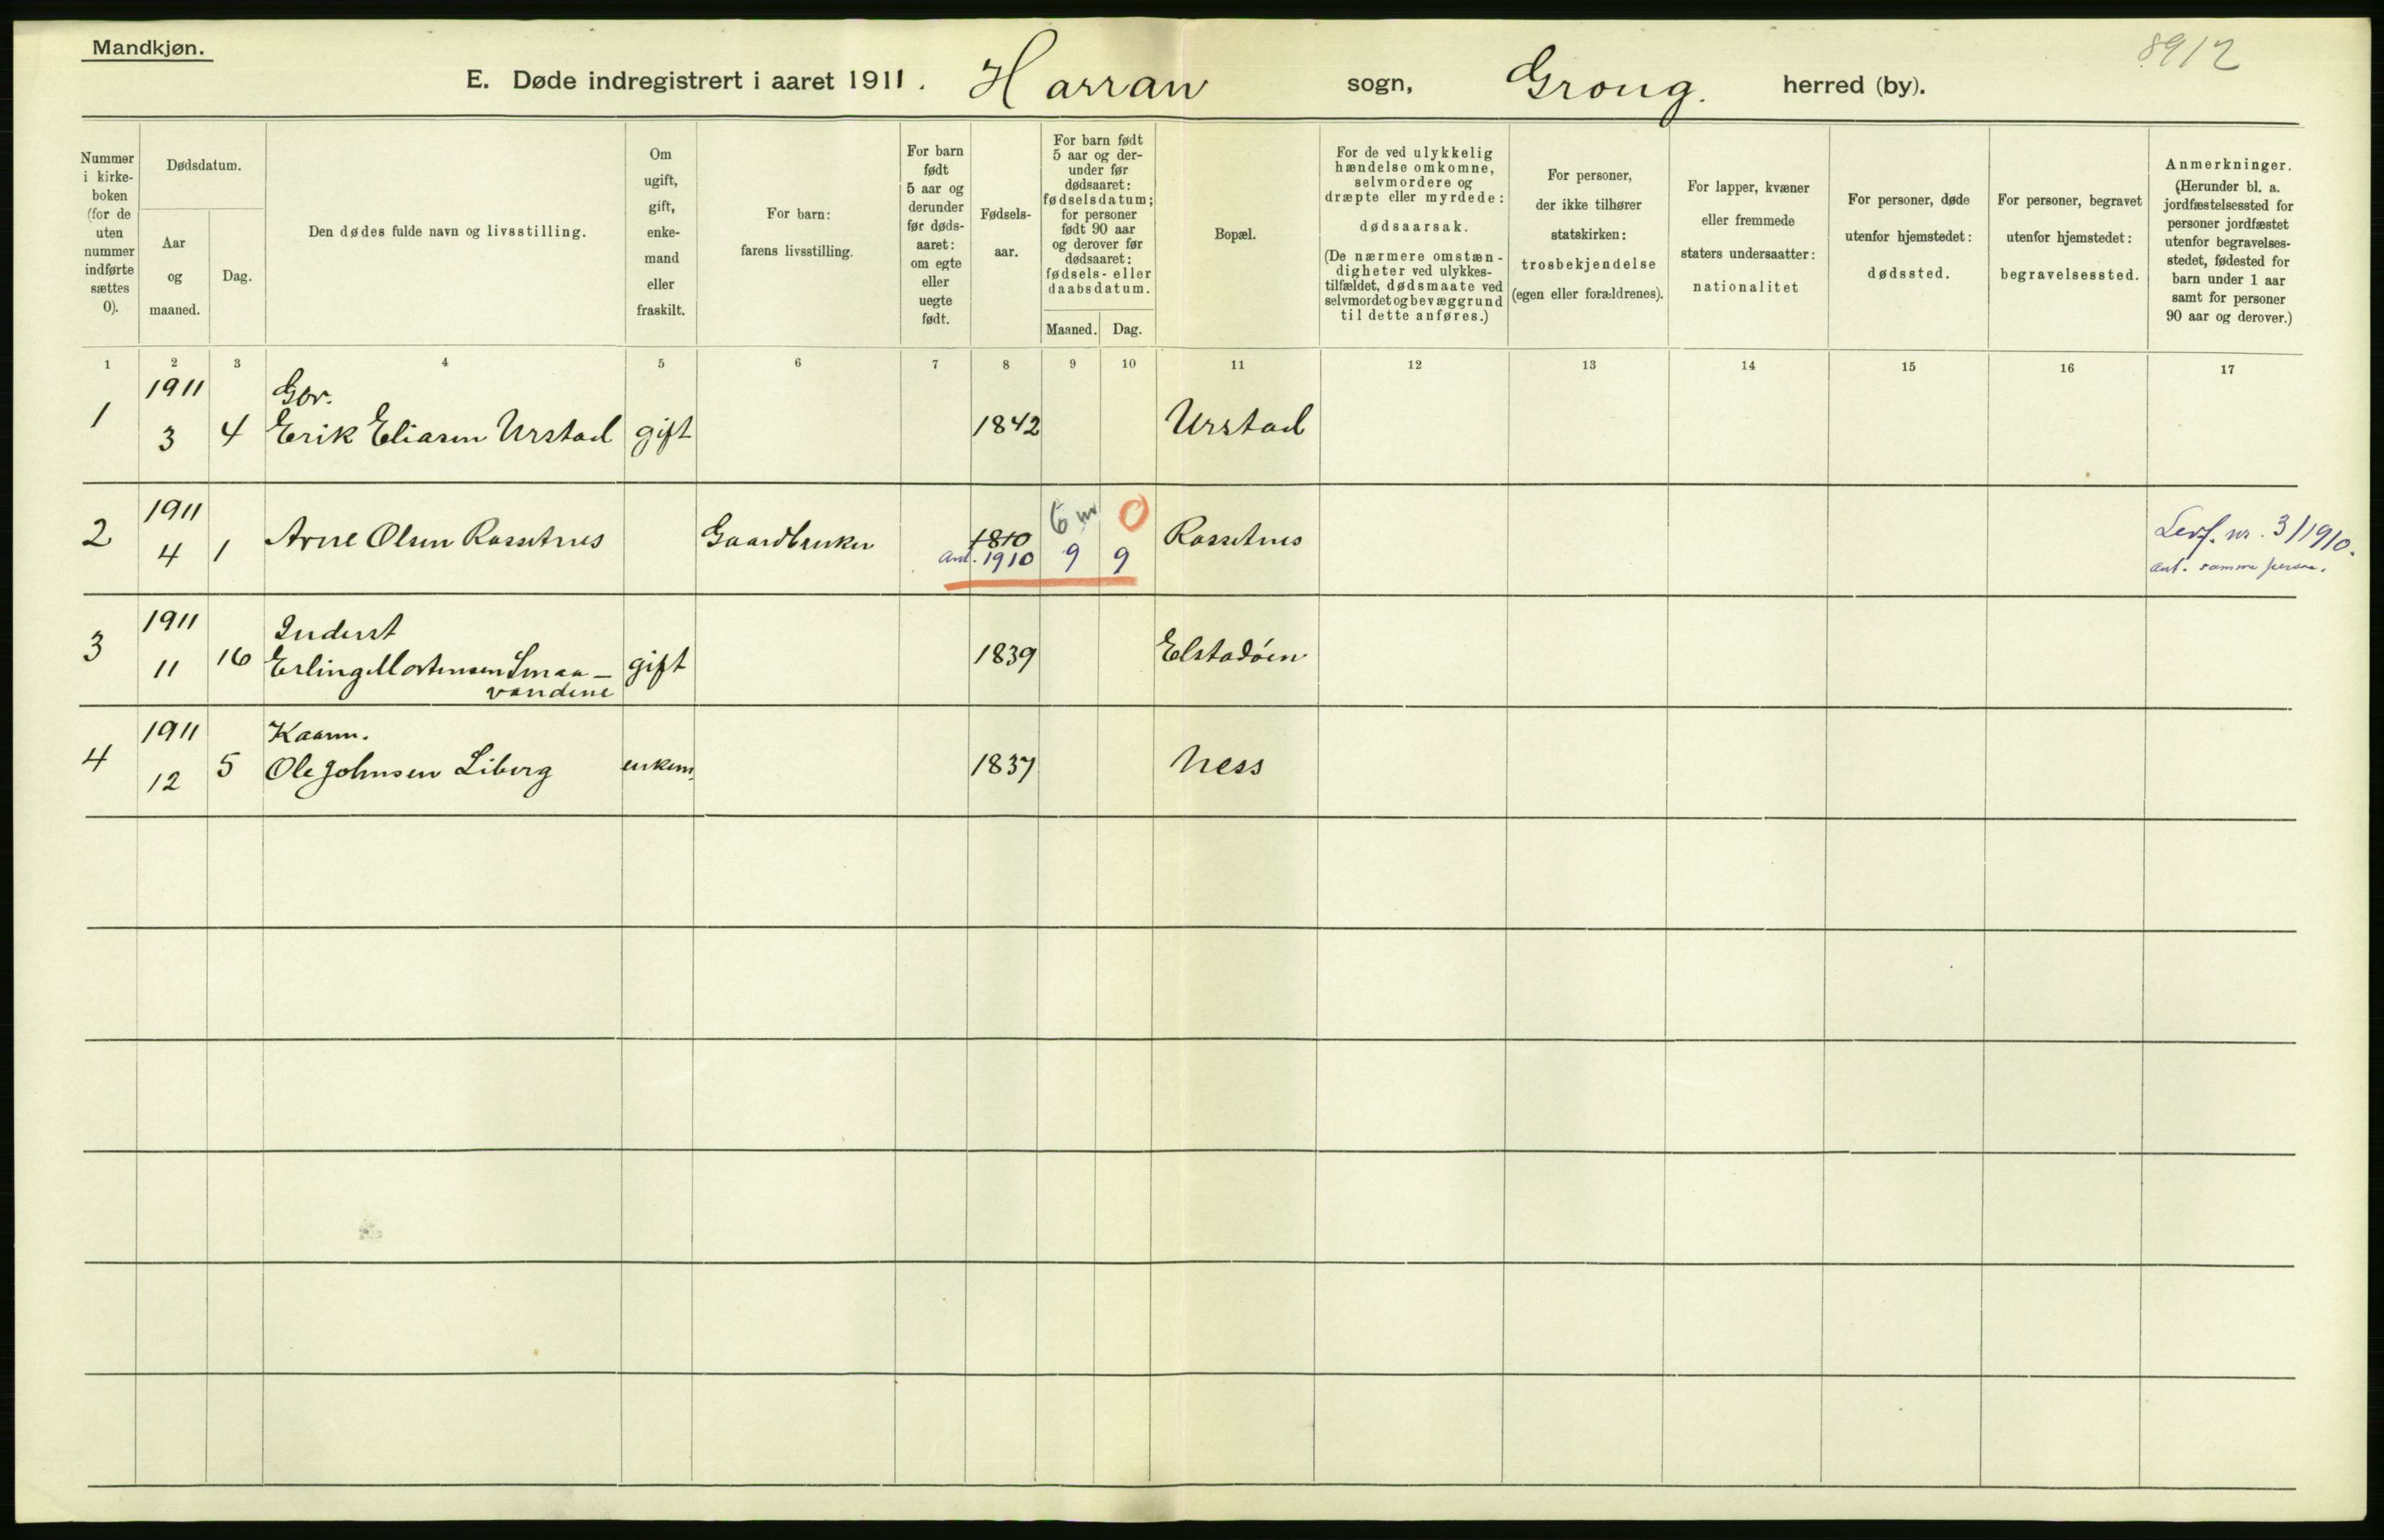 Mandkjøn.
8912
E. Døde indregistrert i aaret 1911. Harran sogn, Grong. herred (by).
Nummer
i kirke-
boken
(for de
uten
nummer
indførte
sættes
0).
Dødsdatum.
Aar
og
maaned.
Dag.
Den dødes fulde navn og livsstilling.
Om
ugift,
gift,
enke-
mand
eller
fraskilt.
For barn:
farens livsstilling.
For barn
født
5 aar og
derunder
før døds-
aaret:
om egte
eller
uegte
født.
Fødsels-
aar.
For barn født
5 aar og der-
under før
dødsaaret:
fødselsdatum;
for personer
født 90 aar
og derover før
dødsaaret:
fødsels- eller
daabsdatum.
Maaned.
Dag.
Bopæl.
For de ved ulykkelig
hændelse omkomne,
selvmordere og
dræpte eller myrdede:
dødsaarsak.
(De nærmere omstæn-
digheter ved ulykkes-
tilfældet, dødsmaate ved
selvmordet og bevæggrund
til dette anføres.)
For personer,
der ikke tilhører
statskirken:
trosbekjendelse
(egen eller forældrenes).
For lapper, kvæner
eller fremmede
staters undersaatter:
nationalitet
For personer, døde
utenfor hjemstedet:
dødssted.
For personer, begravet
utenfor hjemstedet:
begravelsessted.
Anmerkninger.
(Herunder bl. a.
jordfæstelsessted for
personer jordfæstet
utenfor begravelses-
stedet, fødested for
barn under 1 aar
samt for personer
90 aar og derover.)
1 2 3 4 5 6 7 8 9 10 11 12 13 14 15 16 17
1911 Gbr.
1 3 4 Erik Eliasen Urstad gift 1842 Urstad
1911 6 m 0
2 4 1 Arne Olsen Rossetnes Gaardbruker 1810 Rossetnes Levf. nr. 3/1910.
ant. 1910 9 9 ant. samme person.
1911 Inderst
3 11 16 Erling Mortensen Smaa- gift 1839 Elstadøen
vandene
1911 Kaarm.
4 12 5 Ole Johnsen Liberg enkem. 1837 Ness